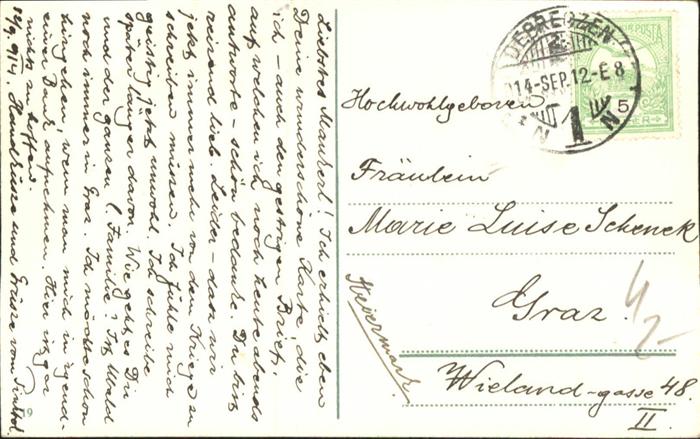 Liebstes Mauserl! Ich erhielt eben
Deine wunderschöne Karte, die
ich – auch den gestrigen Brief,
auf welchen ich noch heute abends
antworte – schön bedanke. Du bist
reizend lieb. Leider – dass wir
jetzt immer mehr von dem Kriege zu
schreiben müssen. Ich fühle mich
geistig jetzt unwohl. Ich schreibe
später länger davon. Wie geht es Dir
und der ganzen l. Familie? Ist
noch immer in Graz. Ich möchte schon
hingehen, wenn man mich in irgend-
einer Bur aufnehmen. Hier ist gar
nichts zu hoffen.
12/9. 914. Handküsse und Grüsse von
DEBRECZEN
914-SEP.12-E 8
1
N
POSTA
5
Hochwohlgeboren
Fräulein
Marie Luise Schenck
Graz.
Steiermark
Wieland-gasse 48.
II.
4/2
9